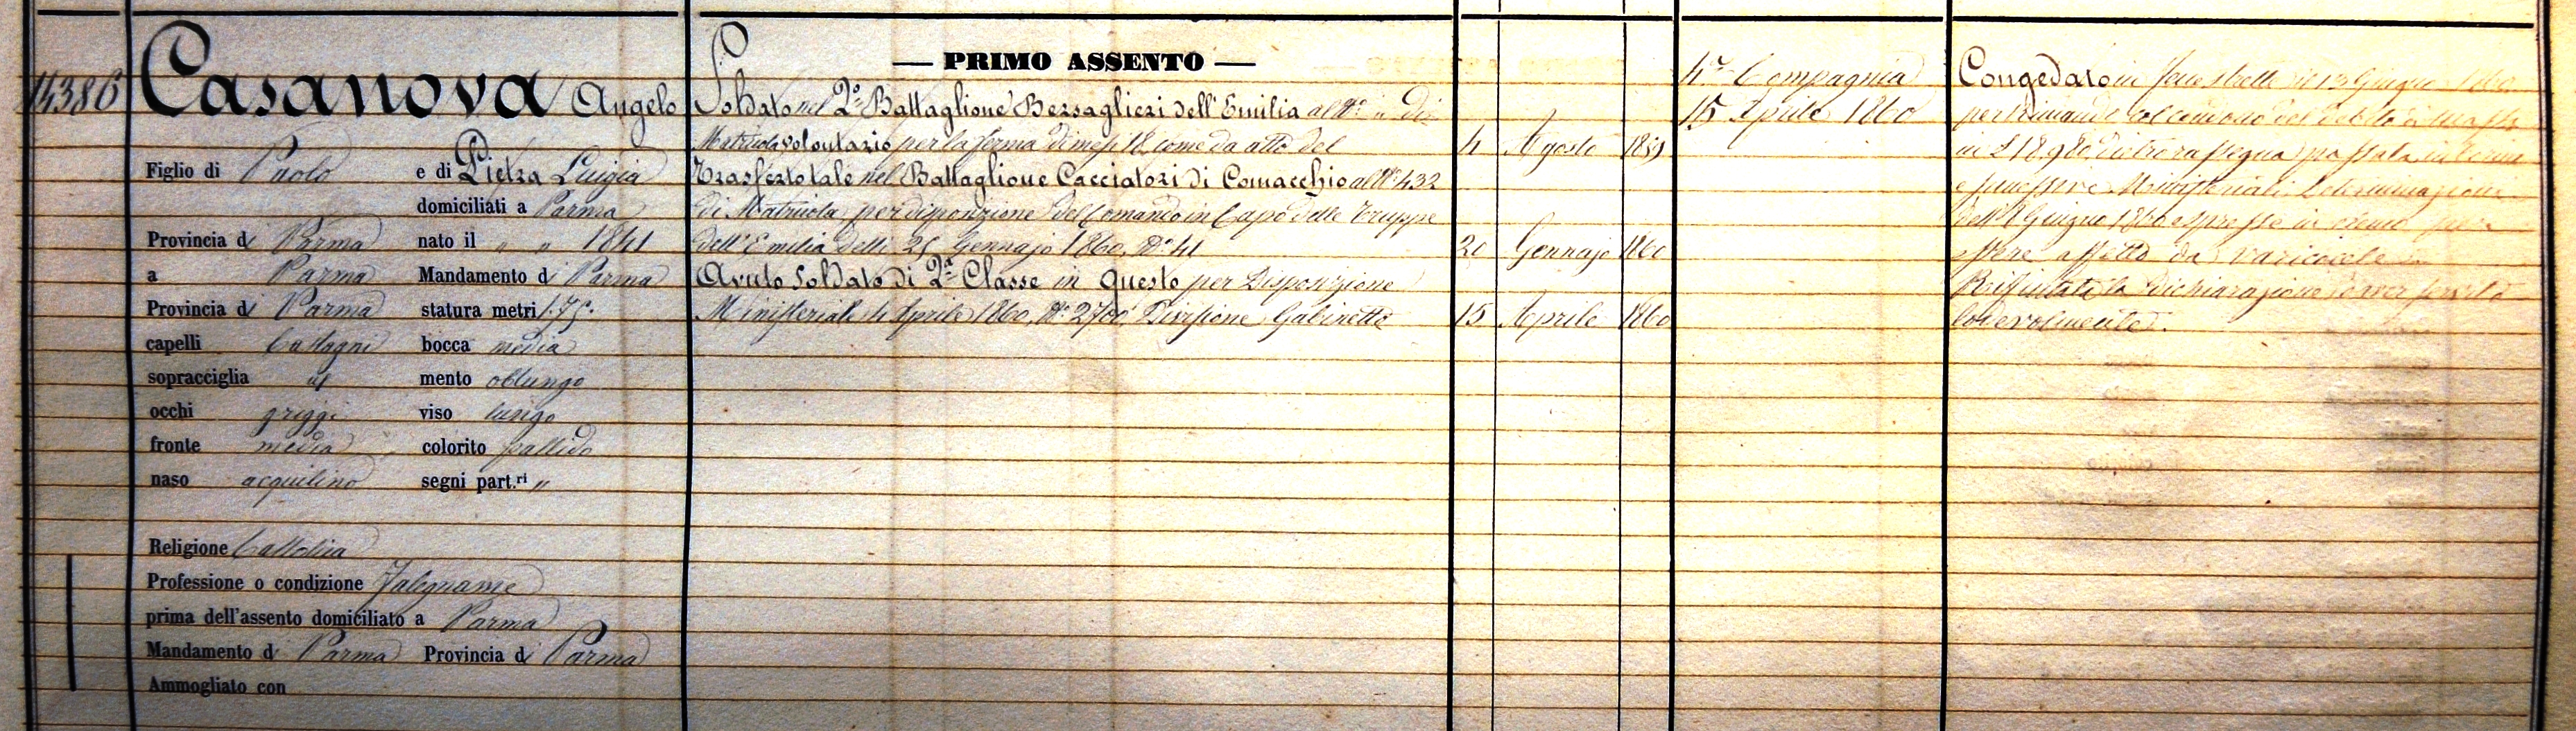 14386
Casanova Angelo
Figlio di Paolo e di Pietra Luigia
domiciliati a Parma
Provincia di Parma nato il " " 1841
a Parma Mandamento di Parma
Provincia di Parma statura metri 1.75.
capelli castagni bocca media
sopracciglia id mento oblungo
occhi griggi viso lungo
fronte media colorito pallido
naso acquilino segni part.ri "
Religione Cattolica
Professione o condizione Falegname
prima dell'assento domiciliato a Parma
Mandamento di Parma Provincia di Parma
Ammogliato con
— PRIMO ASSENTO —
Soldato nel 2o Battaglione Bersaglieri dell'Emilia al No " di
Matricola volontario per la ferma di mesi 18 come da atto del 4 Agosto 1859
Trasferto tale nel Battaglione Cacciatori di Comacchio al No 432
di Matricola per disposizione del Comando in Capo delle Truppe
dell'Emilia delli 25 Gennajo 1860, No 41 20 Gennajo 1860
Avuto Soldato di 2a Classe in questo per Disposizione
Ministeriale 4 Aprile 1860, No 2700, Divisione Gabinetto 15 Aprile 1860
4a Compagnia
15 Aprile 1860
Congedato in Fenestrelle il 13 Giugno 1860
per rimando col condono del debito di massa
in £ 18,980 dietro rassegna passata in Torino
e successive Ministeriali Determinazioni
dell' Giugno 1860 espresse in elenco per
essere affetto da varicocele
Rifiutata la dichiarazione d'aver servito
lodevolmente.